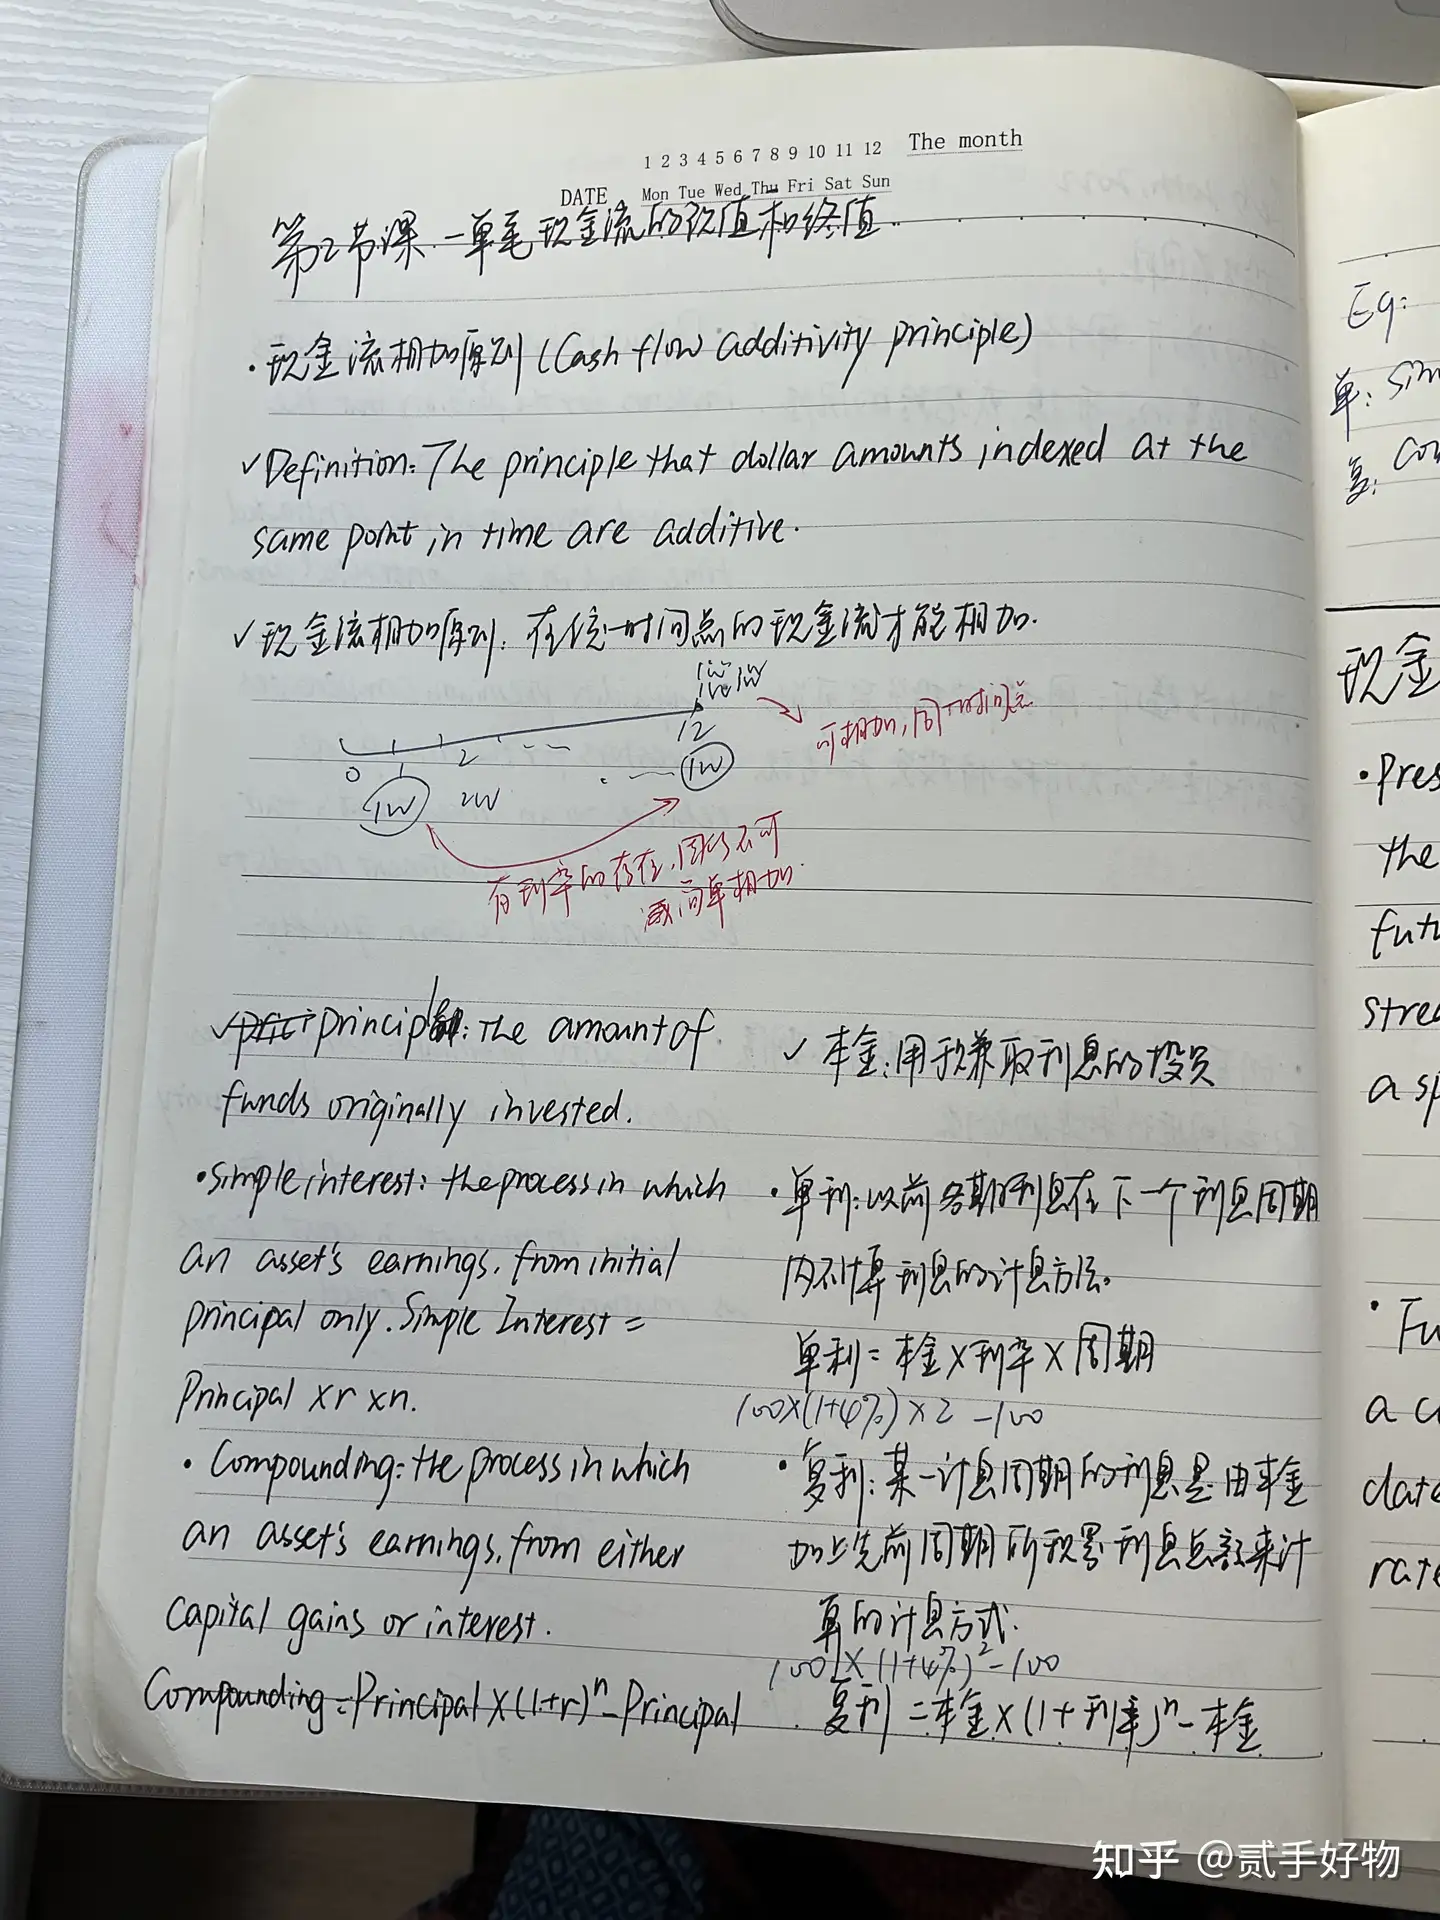 1 2 3 4 5 6 7 8 9 10 11 12 The month
DATE Mon Tue Wed Thu Fri Sat Sun
第2节课.一单笔现金流的现值和终值
·现金流相加原则(Cash flow additivity principle)
✓Definition: The principle that dollar amounts indexed at the
same point in time are additive.
✓现金流相加原则:在统一时间点的现金流才能相加.
1W 1W
0 2 -- 12
1W 2W 1W
可相加,同一时间点
有利率的存在,因此不可
简单相加.
✓principal: The amount of
funds originally invested.
✓本金:用于赚取利息的投资
·Simple interest: the process in which
an asset's earnings, from initial
principal only. Simple Interest =
Principal × r × n.
·单利:以前各期利息在下一个利息周期
内不计算利息的计息方法。
单利=本金×利率×周期
100×(1+4%)×2-100
·Compounding: the process in which
an asset's earnings, from either
capital gains or interest.
Compounding=Principal×(1+r)ⁿ-Principal
·复利:某一计息周期的利息是由本金
加上先前周期所积累利息总额来计
算的计息方式.
100×(1+4%)²-100
复利=本金×(1+利率)ⁿ-本金
Eg:
单: Sim
复: Com
现金
·Pres
the
futu
strea
a sp
·Fu
a c
date
rate
知乎 @贰手好物